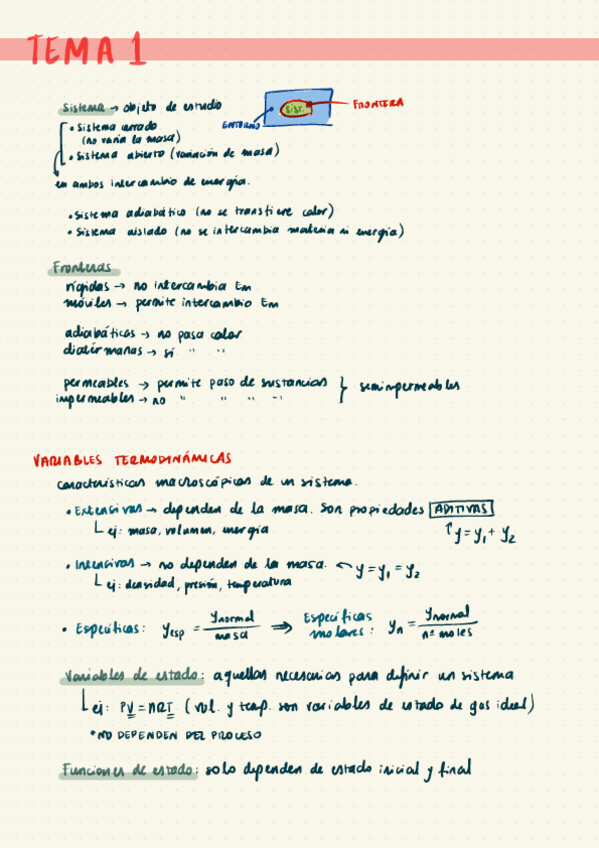 TEMA 1
Sistema → objeto de estudio
SIST.
FRONTERA
ENTORNO
• Sistema cerrado
(no varía la masa)
• Sistema abierto (variación de masa)
en ambos intercambio de energía.
• Sistema adiabático (no se transfiere calor)
• Sistema aislado (no se intercambia materia ni energía)
Fronteras
rígidas → no intercambia Em
móviles → permite intercambio Em
adiabáticas → no pasa calor
diatérmanas → sí " "
permeables → permite paso de sustancias } semiimpermeables
impermeables → no " " " "
VARIABLES TERMODINÁMICAS
características macroscópicas de un sistema.
• Extensivas → dependen de la masa. Son propiedades ADITIVAS
ej: masa, volumen, energía
↑y = y₁ + y₂
• Intensivas → no dependen de la masa. y = y₁ = y₂
ej: densidad, presión, temperatura
• Específicas: yesp = ynormal / masa ⇒ Específicas molares: yn = ynormal / nº moles
Variables de estado: aquellas necesarias para definir un sistema
ej: PV = nRT (vol. y temp. son variables de estado de gas ideal)
*NO DEPENDEN DEL PROCESO
Funciones de estado: solo dependen de estado inicial y final